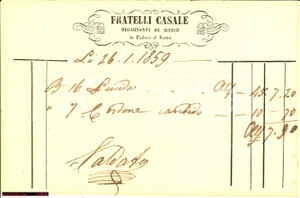 FRATELLI CASALE
NEGOZIANTI DI MERCI
in Padova al Santo
Li 26.1.1859
16 . . . 7.20
" 7 Cordone candido — 10 - 70
7.90
Saldato